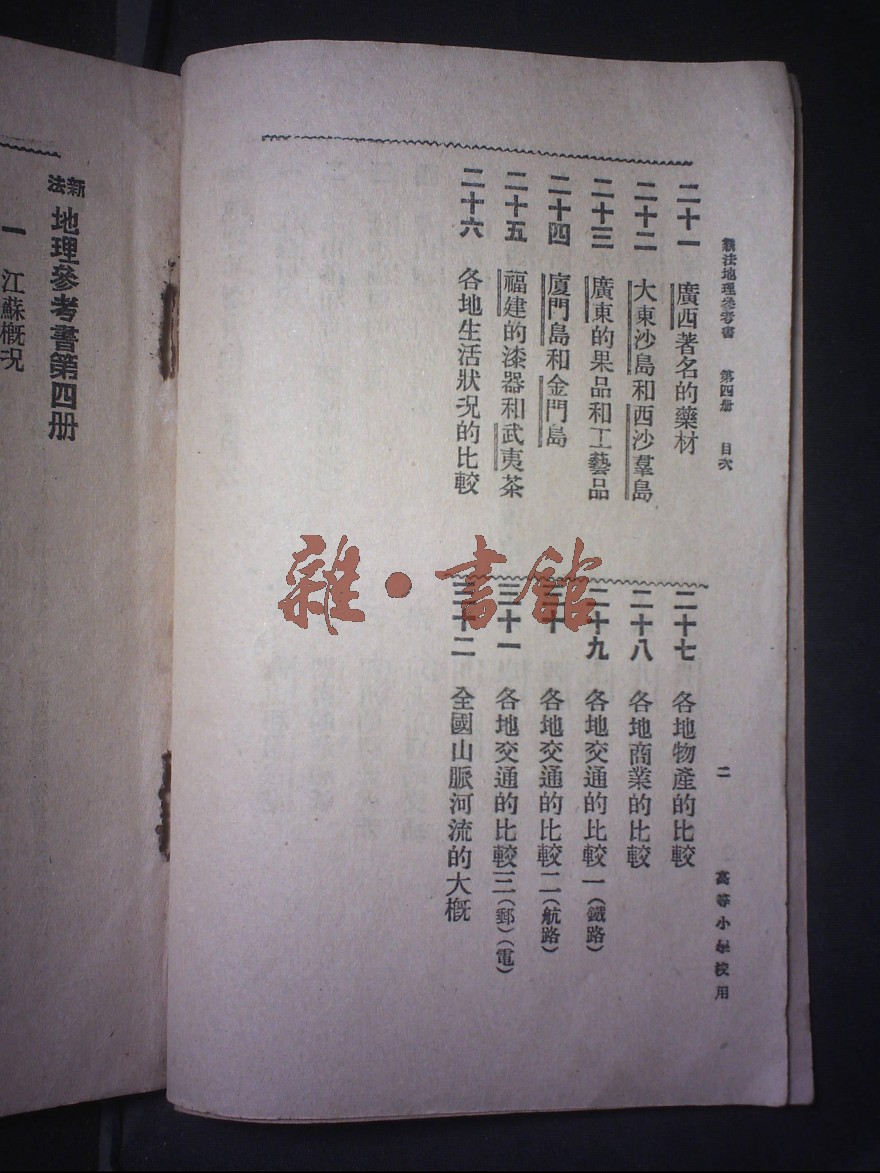 新法地理參考書 第四册 目次 二 高等小學校用
二十一 廣西著名的藥材
二十二 大東沙島和西沙羣島
二十三 廣東的果品和工藝品
二十四 廈門島和金門島
二十五 福建的漆器和武夷茶
二十六 各地生活狀況的比較
二十七 各地物產的比較
二十八 各地商業的比較
二十九 各地交通的比較一(鐵路)
三十 各地交通的比較二(航路)
三十一 各地交通的比較三(郵)(電)
三十二 全國山脈河流的大槪
新法地理參考書第四册
一 江蘇槪況
雜·書館